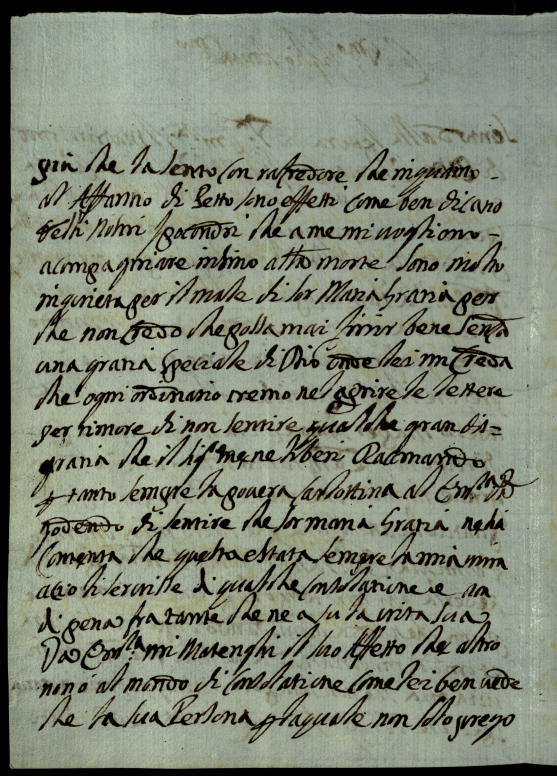 più che la sento con rafredore che in quanto
al Affanno di Petto sono effetti come ben dicano
testi Nostri Ipocondri che a me mi vogliono
acompagniare insino alla morte sono molto
inquieta per il male di Sor Maria Grazia per
che non credo che possa mai finir bene senza
una grazia speciale di Dio onde lei mi creda
che ogni ordinario tremo nel aprire le lettere
per timore di non sentire qualche gran dis=
grazia che il me ne liberi Racmando
p tanto sempre la povera Carlottina al
godendo di sentire che Sor Maria Grazia ne sia
contenta che questa è stata sempre la mia mira
acio li servisse di qualche consolatione e
di pena fra tante che ne a su la vita sua
Da mi Mantenghi il suo Affetto che altro
non ó al mondo di consolatione come lei ben vede
che la sua Persona p la quale non solo prego